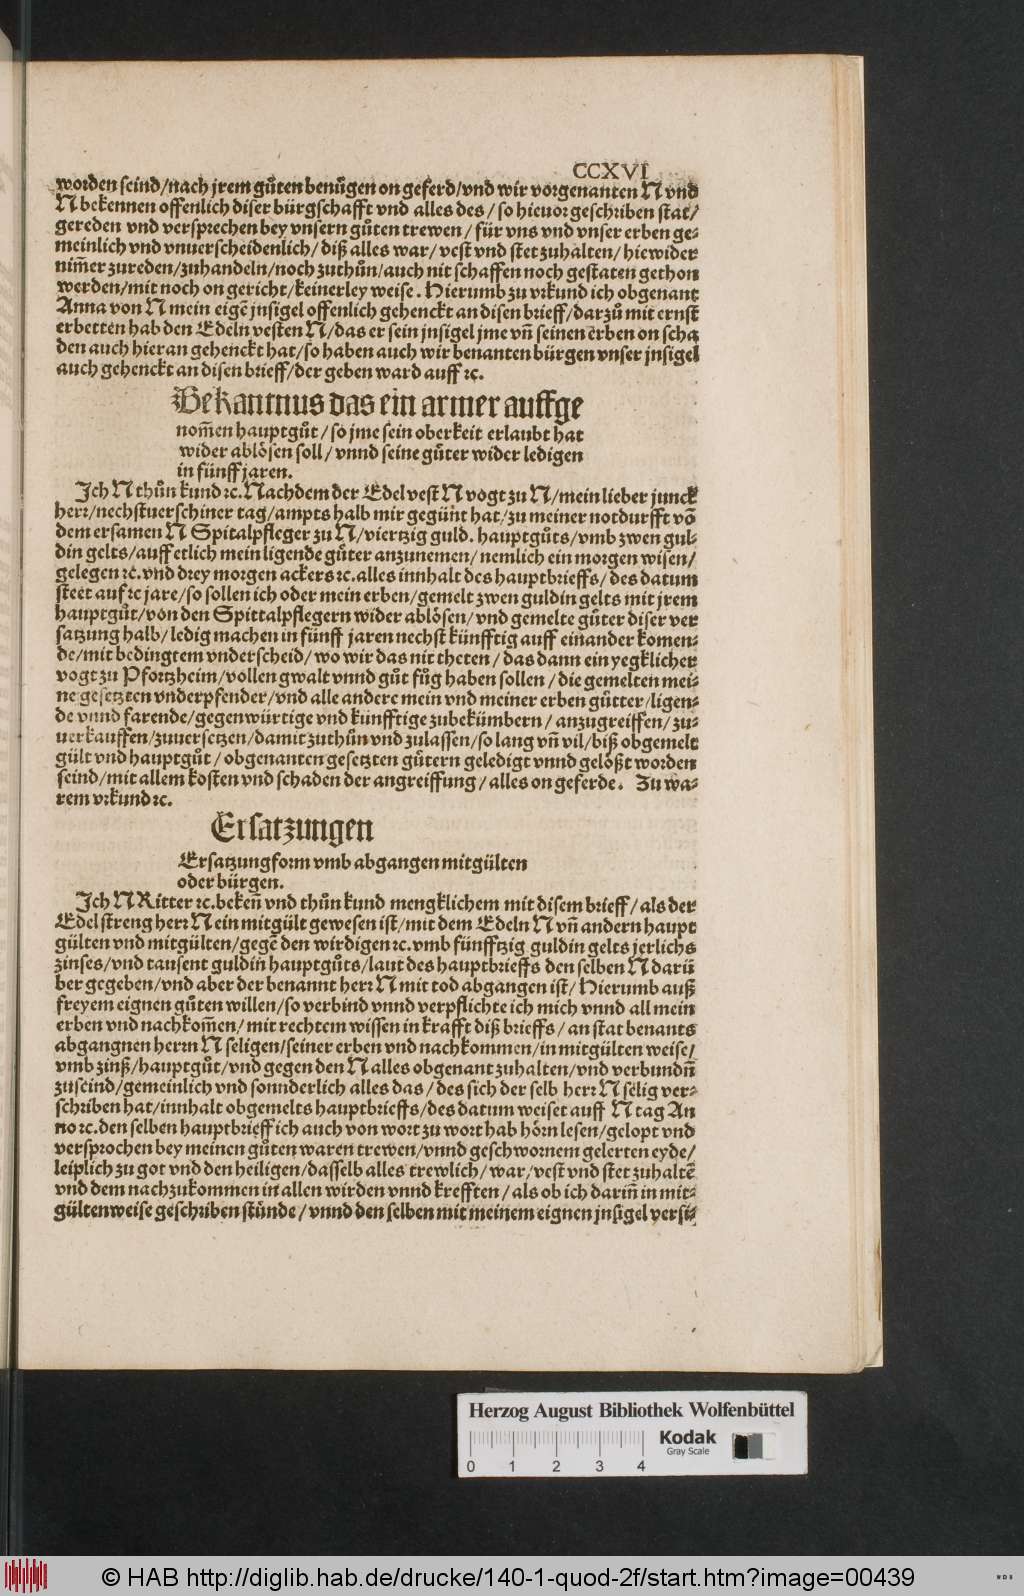 CCXVI
worden seind/nach jrem gůten benügen on geferd/vnd wir vorgenanten N vnd
N bekennen offenlich diser bürgschafft vnd alles des/so hieuor geschriben stat/
gereden vnd versprechen bey vnsern gůten trewen/für vns vnd vnser erben ge-
meinlich vnd vnuerscheidenlich/diß alles war/vest vnd stet zuhalten/hiewider
nim̄er zureden/zuhandeln/noch zuthůn/auch nit schaffen noch gestaten gethon
werden/mit noch on gericht/keinerley weise. Hierumb zu vrkund ich obgenant
Anna von N mein eigē jnsigel offenlich gehenckt an disen brieff/darzů mit ernst
erbetten hab den Edeln vesten N/das er sein jnsigel jme vn̄ seinen erben on scha
den auch hieran gehenckt hat/so haben auch wir benanten bürgen vnser jnsigel
auch gehenckt an disen brieff/der geben ward auff ꝛc.
Bekantnus das ein armer auffge
nom̄en hauptgůt/so jme sein oberkeit erlaubt hat
wider ablösen soll/vnnd seine gůter wider ledigen
in fünff jaren.
Ich N thůn kund ꝛc. Nachdem der Edel vest N vogt zu N/mein lieber junck
herr/nechstuerschiner tag/ampts halb mir gegünt hat/zu meiner notdurfft vō
dem ersamen N Spitalpfleger zu N/viertzig guld. hauptgůts/vmb zwen gul-
din gelts/auff etlich mein ligende gůter anzunemen/nemlich ein morgen wisen/
gelegen ꝛc. vnd drey morgen ackers ꝛc. alles innhalt des hauptbrieffs/des datum
steet auf ꝛc jare/so sollen ich oder mein erben/gemelt zwen guldin gelts mit jrem
hauptgůt/von den Spittalpflegern wider ablösen/vnd gemelte gůter diser ver
satzung halb/ledig machen in fünff jaren nechst künfftig auff einander komen-
de/mit bedingtem vnderscheid/wo wir das nit theten/das dann ein yegklicher
vogt zu Pfortzheim/vollen gwalt vnnd gůt fůg haben sollen/die gemelten mei-
ne gesetzten vnderpfender/vnd alle andere mein vnd meiner erben gůtter/ligen-
de vnnd farende/gegenwürtige vnd künfftige zubekümbern/anzugreiffen/zu-
uerkauffen/zuuersetzen/damit zuthůn vnd zulassen/so lang vn̄ vil/biß obgemelt
gült vnd hauptgůt/obgenanten gesetzten gůtern geledigt vnnd gelößt worden
seind/mit allem kosten vnd schaden der angreiffung/alles on geferde. Zu wa-
rem vrkund ꝛc.
Ersatzungen
Ersatzungform vmb abgangen mitgülten
oder bürgen.
Ich N Ritter ꝛc. beken̄ vnd thůn kund mengklichem mit disem brieff/als der
Edel streng herr N ein mitgült gewesen ist/mit dem Edeln N vn̄ andern haupt
gülten vnd mitgülten/gegē den wirdigen ꝛc. vmb fünfftzig guldin gelts jerlichs
zinses/vnd tausent guldin hauptgůts/laut des hauptbrieffs den selben N darü
ber gegeben/vnd aber der benannt herr N mit tod abgangen ist/Hierumb auß
freyem eignen gůten willen/so verbind vnnd verpflichte ich mich vnnd all mein
erben vnd nachkom̄en/mit rechtem wissen in krafft diß brieffs/an stat benants
abgangnen herrn N seligen/seiner erben vnd nachkommen/in mitgülten weise/
vmb zinß/hauptgůt/vnd gegen den N alles obgenant zuhalten/vnd verbundn̄
zuseind/gemeinlich vnd sonnderlich alles das/des sich der selb herr N selig ver-
schriben hat/innhalt obgemelts hauptbrieffs/des datum weiset auff N tag An
no ꝛc. den selben hauptbrieff ich auch von wort zu wort hab hörn lesen/gelopt vnd
versprochen bey meinen gůten waren trewen/vnnd geschwornem gelerten eyde/
leiplich zu got vnd den heiligen/dasselb alles trewlich/war/vest vnd stet zuhaltē
vnd dem nachzukommen in allen wirden vnnd krefften/als ob ich darin̄ in mit-
gültenweise geschriben stünde/vnnd den selben mit meinem eignen jnsigel versi-
Herzog August Bibliothek Wolfenbüttel
Kodak
Gray Scale
0 1 2 3 4
© HAB http://diglib.hab.de/drucke/140-1-quod-2f/start.htm?image=00439